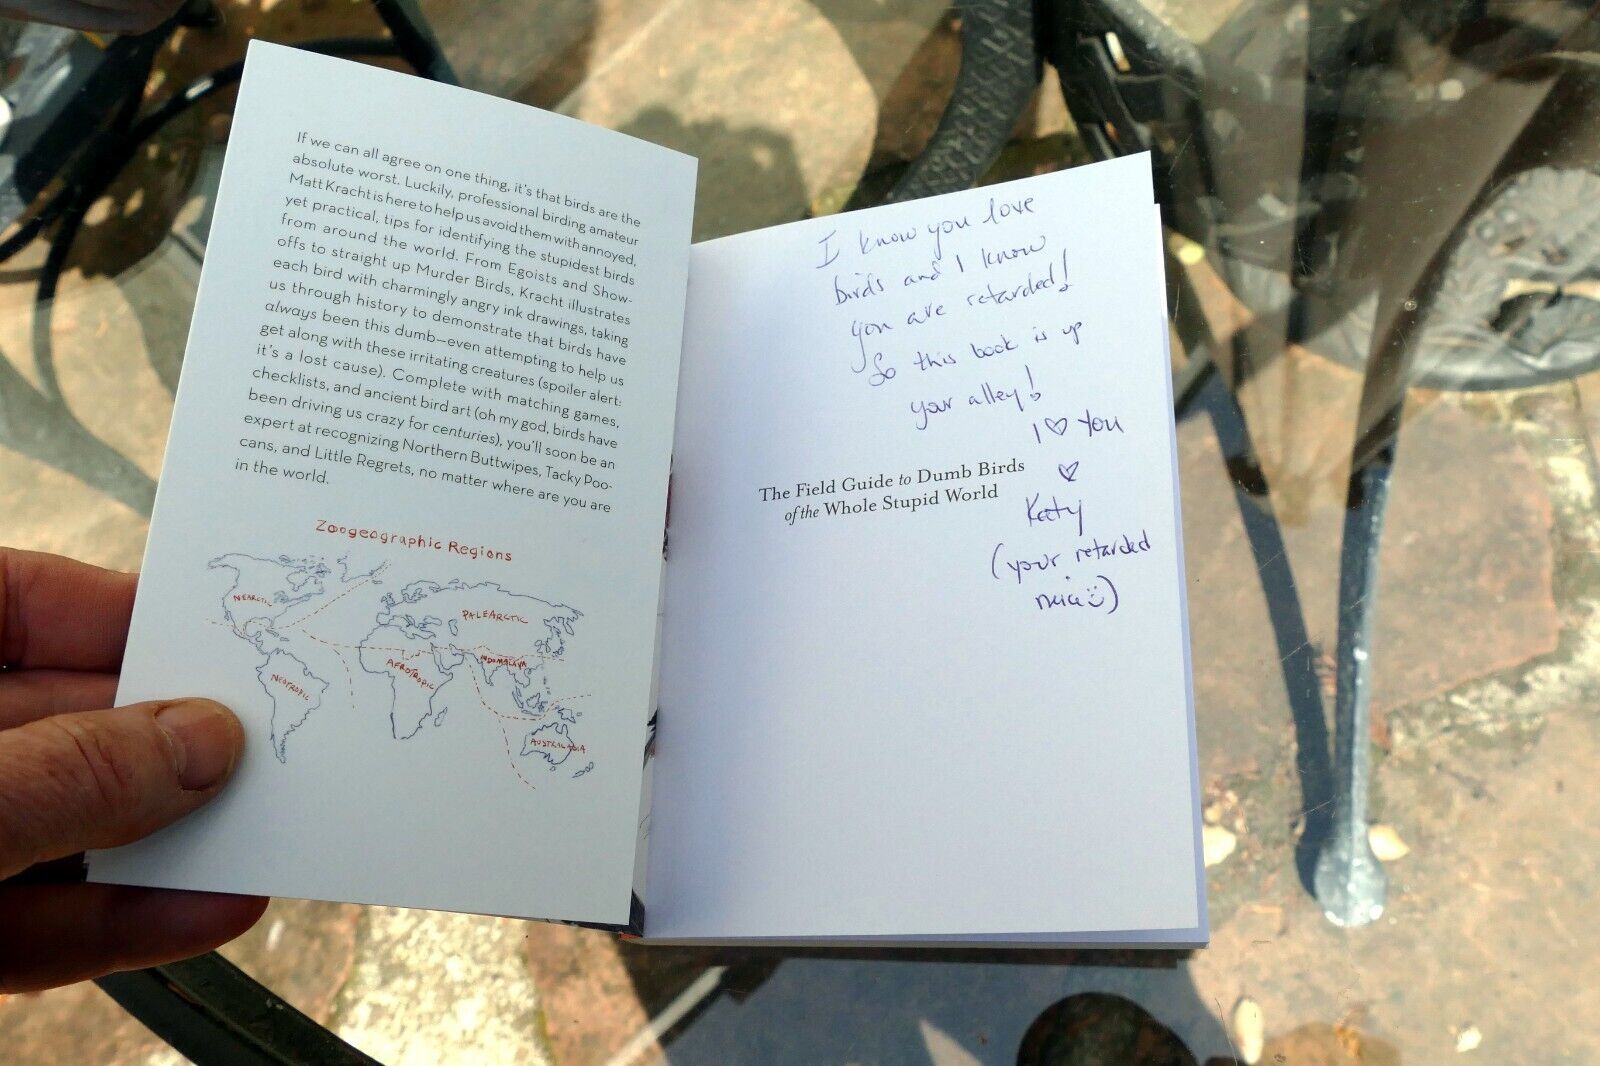 If we can all agree on one thing, it's that birds are the
absolute worst. Luckily, professional birding amateur
Matt Kracht is here to help us avoid them with annoyed,
yet practical, tips for identifying the stupidest birds
from around the world. From Egoists and Show-
offs to straight up Murder Birds, Kracht illustrates
each bird with charmingly angry ink drawings, taking
us through history to demonstrate that birds have
always been this dumb—even attempting to help us
get along with these irritating creatures (spoiler alert:
it's a lost cause). Complete with matching games,
checklists, and ancient bird art (oh my god, birds have
been driving us crazy for centuries), you'll soon be an
expert at recognizing Northern Buttwipes, Tacky Poo-
cans, and Little Regrets, no matter where are you are
in the world.
Zoogeographic Regions
NEARCTIC
PALEARCTIC
INDOMALAYA
AFROTROPIC
NEOTROPIC
AUSTRALASIA
I know you love
birds and I know
you are retarded!
So this book is up
your alley!
I ♡ You
♡
The Field Guide to Dumb Birds
of the Whole Stupid World
Katy
(your retarded
neice☺)